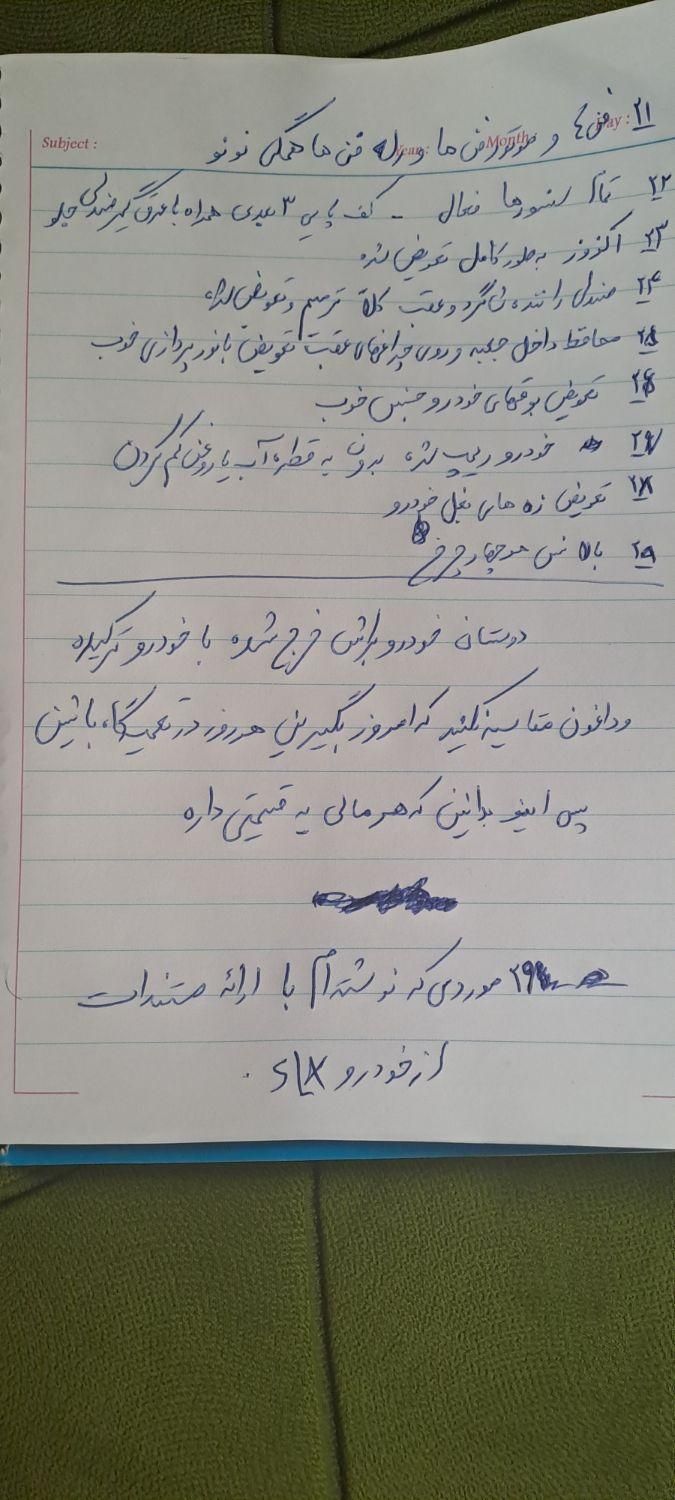 Subject :
Year :
Month :
Day :
۲۱ فن ها و موتورفن ها و رله فن ها همگی نو نو
۲۲ تمام سنسورها فعال - کف پایی ۳ بعدی همراه با عرق گیر صندلی جلو
۲۳ اگزوز به طور کامل تعویض شده
۲۴ صندلی راننده شاگرد و عقب کلاً ترمیم و تعویض شده
۲۵ محافظ داخل جعبه و روی چراغهای عقب تعویض با نورپردازی خوب
۲۶ تعویض بوقهای خودرو جنس خوب
۲۷ خودرو ریپ نزده بدون یه قطره آب یا روغن کم کردن
۲۸ تعویض زه های بغل خودرو
۲۹ بالانس هر چهار چرخ
دوستان خودرو براش خرج شده با خودرو ترکیده
وداغون مقایسه نکنید که امروز بگیرین هرروز در تعمیرگاه باشین
پس اینو بدانین که هر مالی یه قیمتی داره
۲۹ موردی که نوشته ام با ارائه مستندات
از خودرو